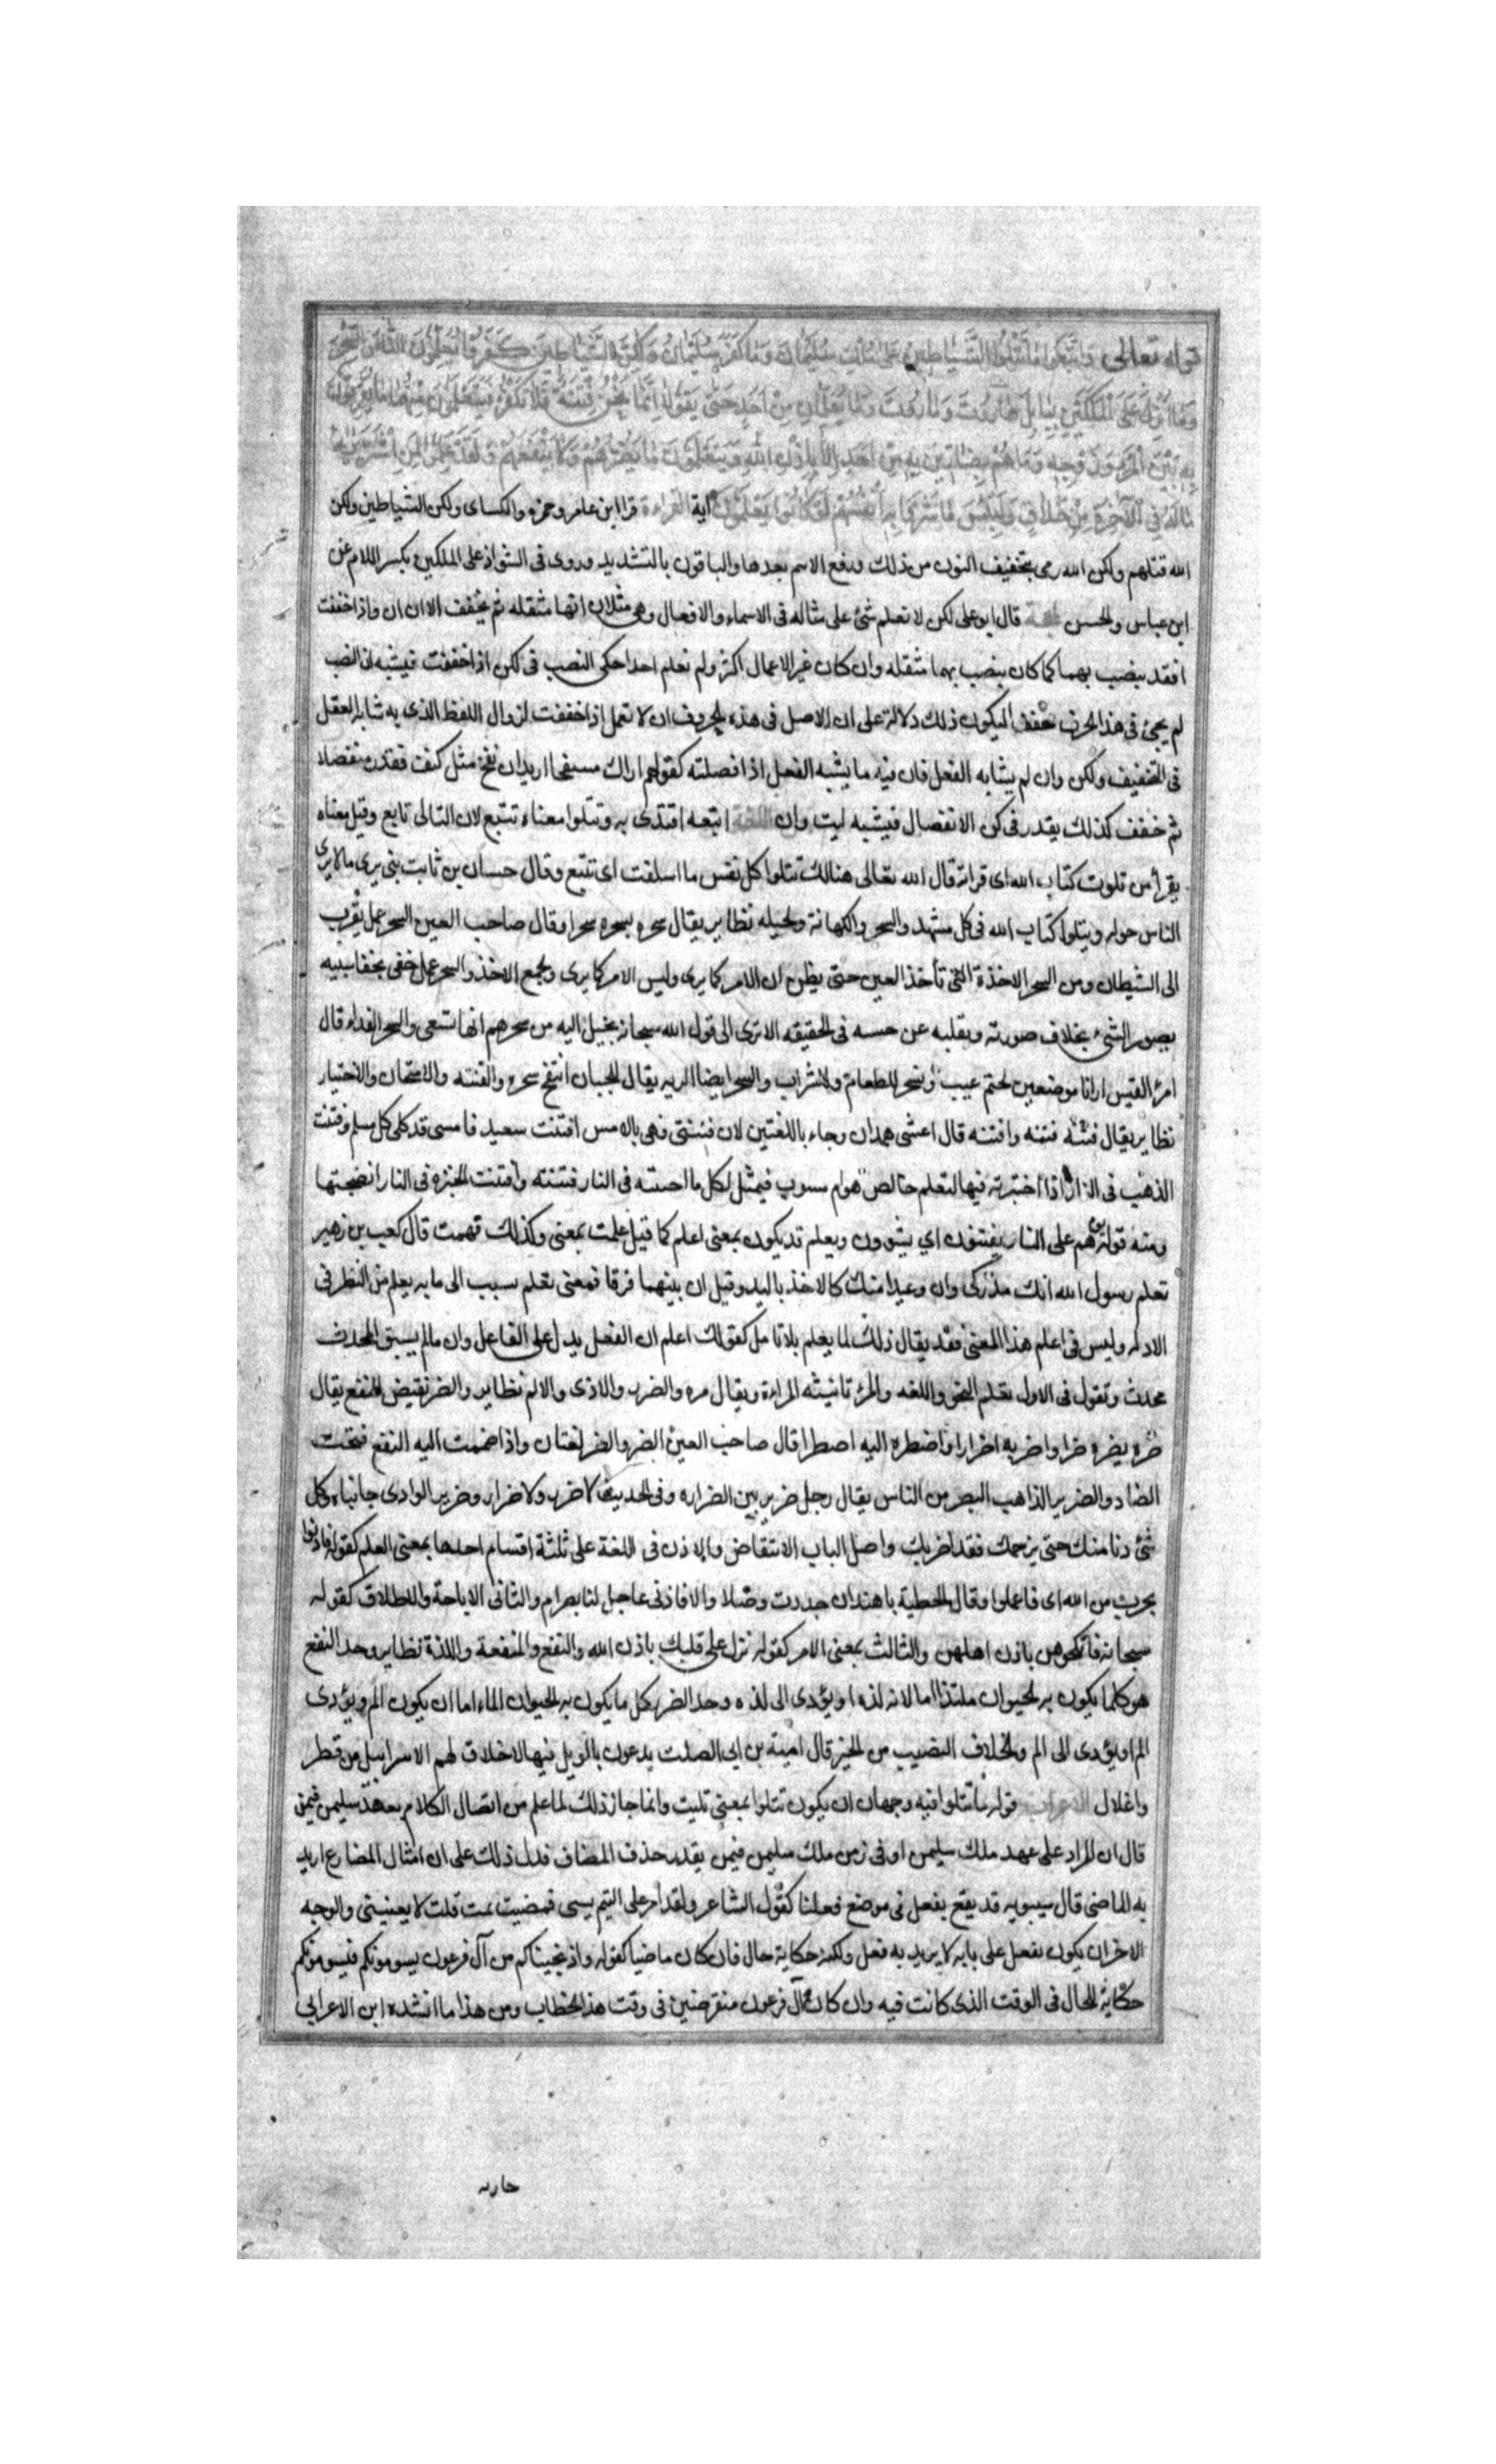 قوله تعالى وَاتَّبَعُوا مَا تَتْلُوا الشَّيَاطِينُ عَلَى مُلْكِ سُلَيْمَانَ وَمَا كَفَرَ سُلَيْمَانُ وَلَكِنَّ الشَّيَاطِينَ كَفَرُوا يُعَلِّمُونَ النَّاسَ السِّحْرَ
وَمَا أُنْزِلَ عَلَى الْمَلَكَيْنِ بِبَابِلَ هَارُوتَ وَمَارُوتَ وَمَا يُعَلِّمَانِ مِنْ أَحَدٍ حَتَّى يَقُولَا إِنَّمَا نَحْنُ فِتْنَةٌ فَلَا تَكْفُرْ فَيَتَعَلَّمُونَ مِنْهُمَا مَا يُفَرِّقُونَ
بِهِ بَيْنَ الْمَرْءِ وَزَوْجِهِ وَمَا هُمْ بِضَارِّينَ بِهِ مِنْ أَحَدٍ إِلَّا بِإِذْنِ اللَّهِ وَيَتَعَلَّمُونَ مَا يَضُرُّهُمْ وَلَا يَنْفَعُهُمْ وَلَقَدْ عَلِمُوا لَمَنِ اشْتَرَيهُ
مَا لَهُ فِي الْآخِرَةِ مِنْ خَلَاقٍ وَلَبِئْسَ مَا شَرَوْا بِهِ أَنْفُسَهُمْ لَوْ كَانُوا يَعْلَمُونَ آية القراءة قرا ابن عامر وحمزه والكساى ولكن الشياطين ولكن
الله قتلهم ولكن الله رمى بتخفيف النون من ذلك ورفع الاسم بعدها والباقون بالتشديد وروى فى الشواذ على الملكين بكسر اللام عن
ابن عباس والحسن الحجة قال ابو على لكن لا نعلم شئ على مثاله فى الاسماء والافعال وهى مثل ان انها مثقله ثم يخفف الا ان ان واذا خففت
افقد ينصب بهما كما كان ينصب بهما مثقله وان كان غير الاعمال اكثر ولم نعلم احدا حكى النصب فى لكن اذا خففت فيشبه ان النصب
لم يجئ فى هذا الحرف مخففا ليكون ذلك دلالة على ان الاصل فى هذه الحروف ان لا تعمل اذا خففت لزوال اللفظ الذى به شابه العقل
فى التخفيف ولكن وان لم يشابه الفعل فان فيه ما يشبه الفعل اذا فصلته كقولهم اراك منتفخا اريد ان تفخ مثل كتف فقدر منفصلا
ثم خفف كذلك يقدر فى كن الانفصال فيشبه ليت وان اللغة اتبعه اقتدى به وتتلوا معناه تتبع لان التالى تابع وقيل معناه
يقرأ من تلوت كتاب الله اى قراته قال الله تعالى هنالك تتلوا كل نفس ما اسلفت اى تتبع وقال حسان بن ثابت نبى يرى ما لا يرى
الناس حوله ويتلوا كتاب الله فى كل مشهد والسحر والكهانة والحيله نظاير يقال سحره يسحره سحرا وقال صاحب العين السحر عمل يقرب
الى الشيطان ومن السحر الاخذة التى تأخذ العين حتى يظن ان الامر كما يرى وليس الامر كما يرى والجمع الاخذ والسحر عمل خفى بخفا سببه
يصور الشئ بخلاف صورته ويقلبه عن حسه فى الحقيقه الا ترى الى قول الله سبحانه يخيل اليه من سحرهم انها تسعى والسحر الغداء قال
امرؤ القيس ارانا موضعين لحتم غيب ونسحر للطعام ولاشراب والسحر ايضا الريه يقال للجبان انتفخ سحره والفتنه والامتحان والاختبار
نظاير يقال فتنه فتنه وافتنه قال اعشى همدان وجاء باللغتين لان فتنتنى فهى بالامس افتنت سعيد فامسى قد كلى كل مسلم وفتنت
الذهب فى النار اذا اختبرته فيها لتعلم خالص هوام مسوب فيمثل لكل ما احسنته فى النار فتنته وافتنت الخبزه فى النار انضجتها
ومنه قوله هم على النار يفتنون اي يشوون ويعلم قد يكون بمعنى اعلم كما قيل علمت بمعنى وكذلك فهمت قال كعب بن زهير
تعلم رسول الله انك مدركى وان وعيدا منك كالاخذ باليد وقيل ان بينهما فرقا فمعنى تعلم سبب الى ما به يعلم من النظر فى
الادله وليس فى اعلم هذا المعنى فقد يقال ذلك لما يعلم بلا تامل كقولك اعلم ان الفعل يدل على الفاعل وان مالم يسبق المحدث
محدث وتقول فى الاول تعلم النحو واللغه والمرؤ تانيثه المراءة ويقال مره والضرر والاذى والالم نظاير والضر نقيض النفع يقال
ضره يضره ضرا واضر به اضرارا واضطره اليه اضطرا قال صاحب العين الضر والضر لغتان واذا ضممت اليه النفع فتحت
الضاد والضرير الذاهب البصر من الناس يقال رجل ضرير بين الضراره وفى الحديث لا ضرر ولا ضرار وضرير الوادى جانباه وكل
شئ دنا منك حتى يزحمك فقد اضر بك واصل الباب الانتقاض والاذن فى اللغة على ثلثة اقسام احدها بمعنى العلم كقوله فاذنوا
بحرب من الله اى فاعلموا وقال الحطيئة يا هند ان جددت وصلا والا فاذنى عاجل لنا بصرام والثانى الاباحة والاطلاق كقوله
سبحانه فانكحوهن باذن اهلهن والثالث بمعنى الامر كقوله نزل على قلبك باذن الله والنفع والمنفعة واللذة نظاير وحد النفع
هو كلما يكون به الحيوان ملتذا اما لانه لذه او يؤدى الى لذه وحد الضر كل ما يكون به الحيوان الما اما ان يكون الم ويؤدى
الم او يؤدى الى الم والخلاف النصيب من الخير قال امية بن ابى الصلت يدعون بالويل فيها لاخلاق لهم الا سرابيل من قطر
واغلال الاعراب قوله ما تتلوا فيه وجهان ان يكون تتلوا بمعنى تليت وانما جاز ذلك لما علم من اتصال الكلام بعهد سليمن فيمن
قال ان المراد على عهد ملك سليمن او فى زمن ملك سليمن فيمن يقدر حذف المضاف فدل ذلك على ان امثال المضارع اريد
به الماضى قال سيبويه قد يقع يفعل فى موضع فعلنا كقول الشاعر ولقد امر على اليتم يسبى فمضيت ثمت قلت لا يعنينى والوجه
الاخر ان يكون يفعل على بابه لا يريد به فعل ولكنه حكاية حال فان كان ماضيا كقوله واذ نجيناكم من آل فرعون يسومونكم فيسومونكم
حكاية للحال فى الوقت الذى كانت فيه وان كان آل فرعون منقرضين فى وقت هذا الخطاب ومن هذا ما انشده ابن الاعرابى
جاريه